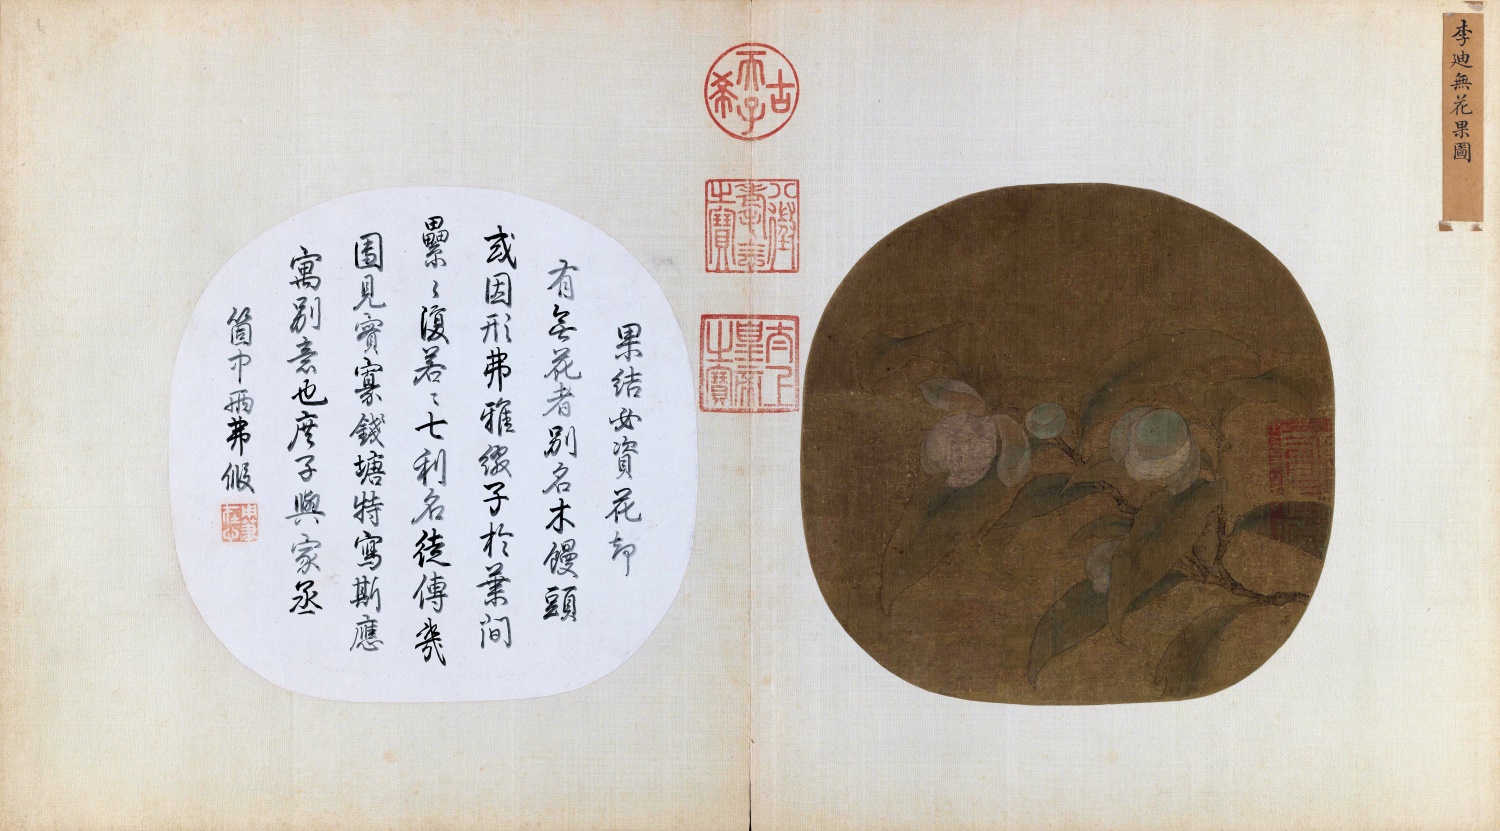 李迪無花果圖
古希天子
八徵耄念之寶
太上皇帝之寶
果結必資花卻
有無花者別名木饅頭
或因形弗雅綴子於葉間
纍〻復若〻七利名徒傳幾
園見實寡錢塘特寫斯應
寓別意也庶子與家丞
箇中兩弗假
用筆在心